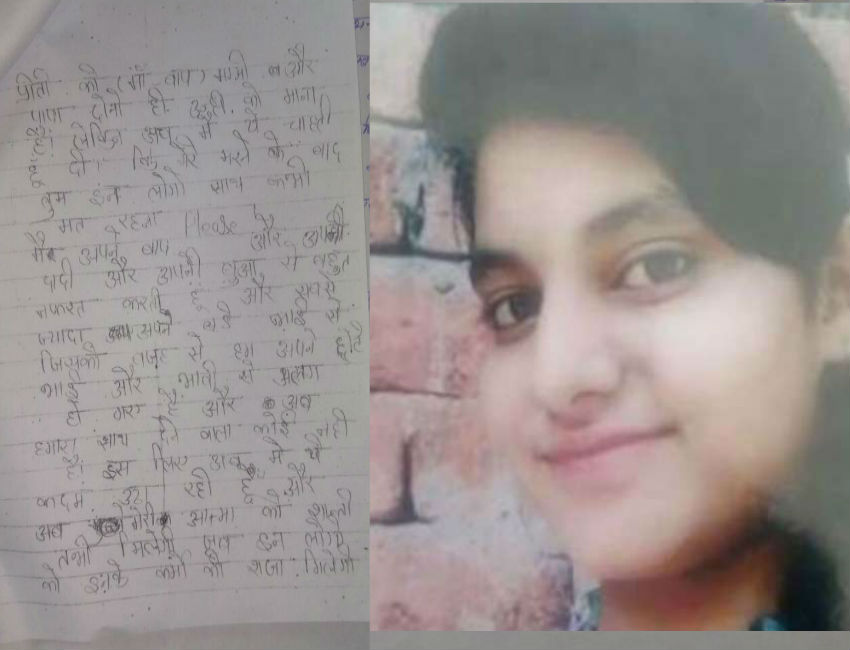 प्रीती को (माँ बाप) मम्मी व और
पापा दोनो ही उन्ही को माना
है। लेकिन अब मैं ये चाहती
हूँ दी। कि मेरे मरने के बाद
तुम इन लोगो साथ कभी
मत रहना Please
मैं अपने बाप और अपनी
दादी और अपनी बुआ से बहुत
नफरत करती हूँ और सबसे
ज्यादा अपने बडे भाई से
जिसकी वजह से हम अपने छोटे
भाई और भाभी से अलग
हो गए है और अब
हमारा साथ देने वाला कोई नही
है इस लिए अब मैं ये
कदम उठा रही हूँ और
अब मेरी आत्मा को शान्ती
तभी मिलेगी जब इन लोगो
को इनके कर्मो की सजा मिलेगी